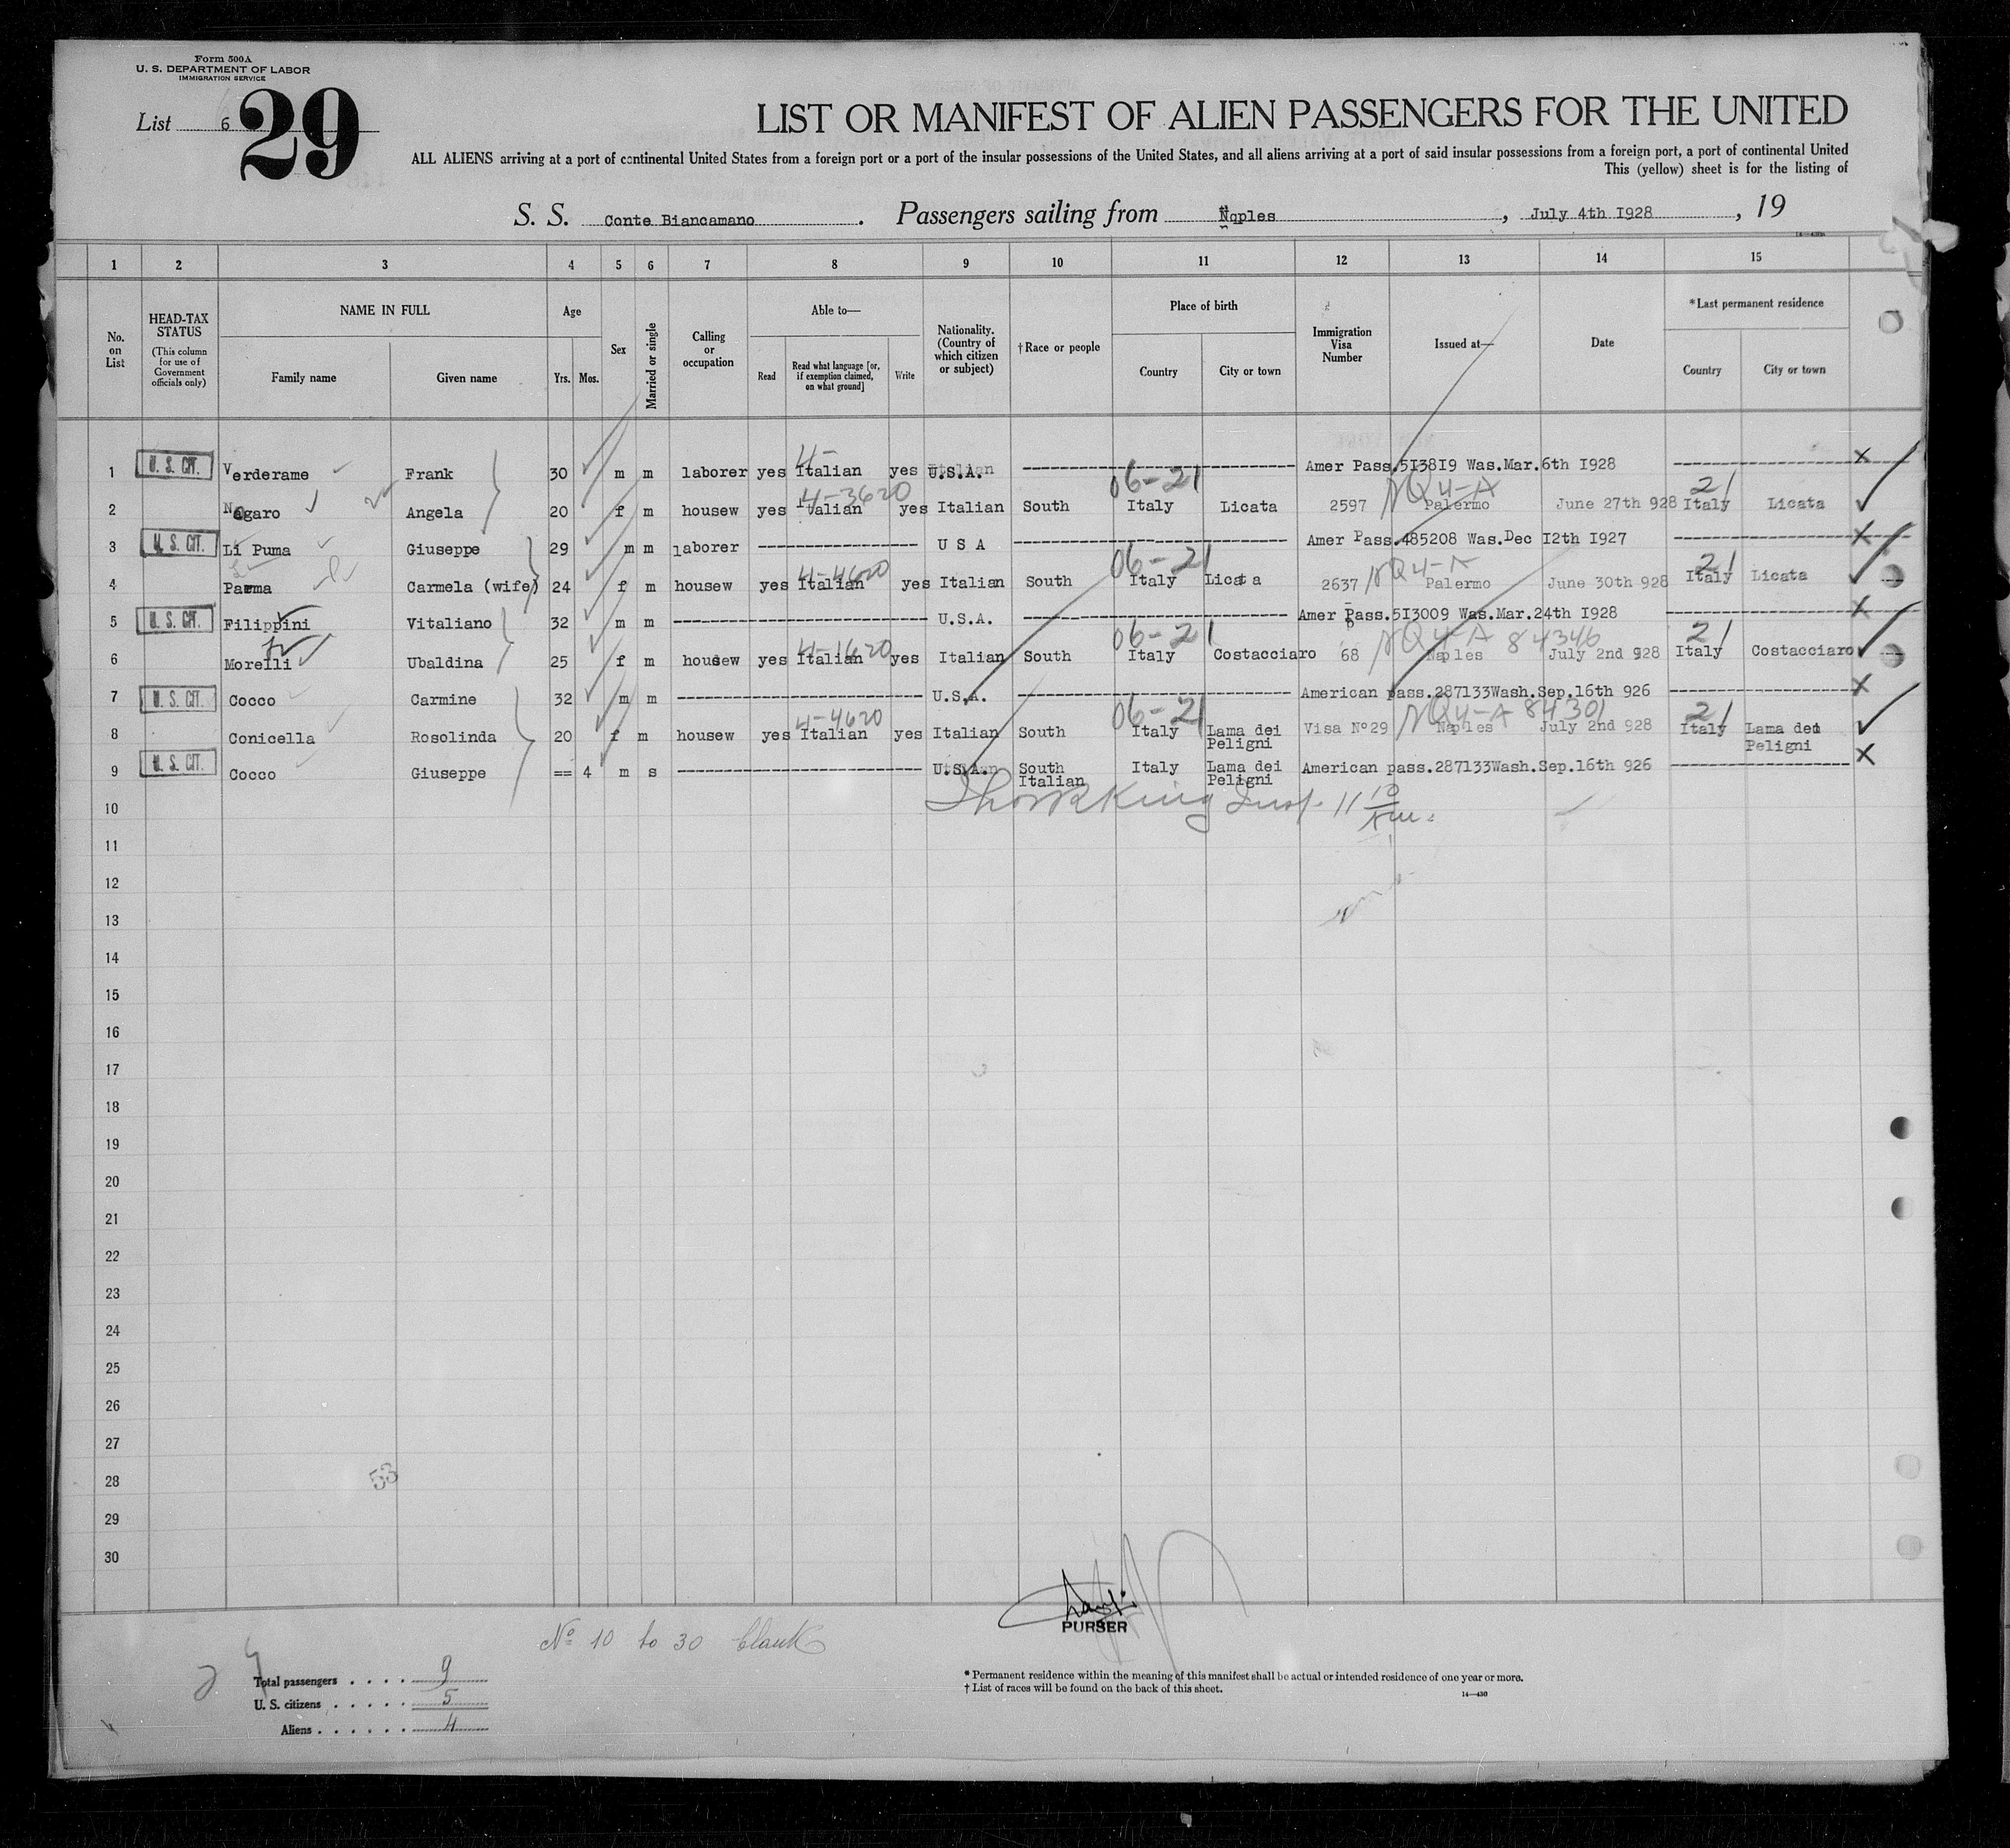 Form 500A
U. S. DEPARTMENT OF LABOR
IMMIGRATION SERVICE
List 6
29
LIST OR MANIFEST OF ALIEN PASSENGERS FOR THE UNITED
ALL ALIENS arriving at a port of continental United States from a foreign port or a port of the insular possessions of the United States, and all aliens arriving at a port of said insular possessions from a foreign port, a port of continental United
This (yellow) sheet is for the listing of
S. S. Conte Biancamano. Passengers sailing from Naples, July 4th I928, 19
1 2 3 4 5 6 7 8 9 10 11 12 13 14 15
No. on List
HEAD-TAX STATUS (This column for use of Government officials only)
NAME IN FULL
Family name Given name
Age
Yrs. Mos.
Sex
Married or single
Calling or occupation
Able to—
Read Read what language [or, if exemption claimed, on what ground] Write
Nationality. (Country of which citizen or subject)
†Race or people
Place of birth
Country City or town
Immigration Visa Number
Issued at—
Date
*Last permanent residence
Country City or town
4-
1 U. S. CIT. Verderame Frank 30 m m laborer yes Italian yes U.S.A. Amer Pass.5I38I9 Was.Mar.6th I928 x
4-3620 06-21 NQ4-A 21
2 Nagaro Angela 20 f m housew yes Italian yes Italian South Italy Licata 2597 Palermo June 27th 928 Italy Licata
3 U. S. CIT. Li Puma Giuseppe 29 m m laborer U S A Amer Pass.485208 Was.Dec I2th I927 x
4-4620 06-21 NQ4-A 21
4 Parma Carmela (wife) 24 f m housew yes Italian yes Italian South Italy Licata 2637 Palermo June 30th 928 Italy Licata
5 U. S. CIT. Filippini Vitaliano 32 m m U.S.A. Amer Pass.5I3009 Was.Mar.24th I928 x
4-1620 06-21 NQ4-A 84346 21
6 Morelli Ubaldina 25 f m housew yes Italian yes Italian South Italy Costacciaro 68 Naples July 2nd 928 Italy Costacciaro
7 U. S. CIT. Cocco Carmine 32 m m U.S.A. American pass.287I33Wash.Sep.I6th 926 x
4-4620 06-21 NQ4-A 84301 21
8 Conicella Rosolinda 20 f m housew yes Italian yes Italian South Italy Lama dei Peligni Visa Nº29 Naples July 2nd 928 Italy Lama dei Peligni
9 U. S. CIT. Cocco Giuseppe == 4 m s U.S.A. South Italian Italy Lama dei Peligni American pass.287I33Wash.Sep.I6th 926 x
10 King Insp. 11 10
11
12
13
14
15
16
17
18
19
20
21
22
23
24
25
26
27
28 53
29
30
PURSER
Nº 10 to 30 blank
Total passengers . . . . 9
U. S. citizens . . . . . 5
Aliens . . . . . . 4
* Permanent residence within the meaning of this manifest shall be actual or intended residence of one year or more.
† List of races will be found on the back of this sheet.
14—430